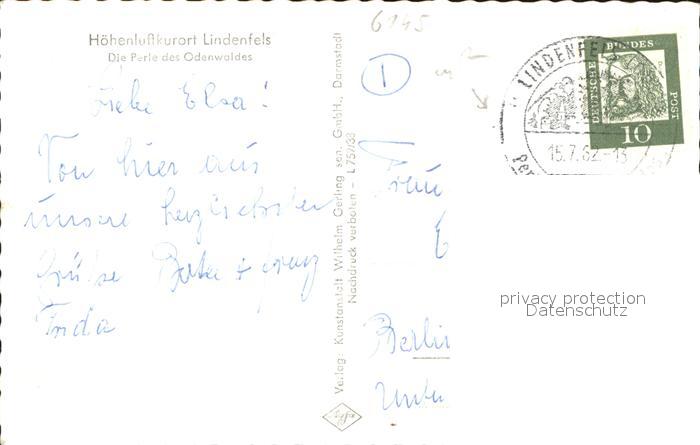 6145
Höhenluftkurort Lindenfels
Die Perle des Odenwaldes
Liebe Elsa!
Von hier aus
unsere herzlichsten
Grüße
Frida
Verlag: Kunstanstalt Wilhelm Gerling sen. GmbH., Darmstadt
Nachdruck verboten - L 757/33
1
LINDENFELS
15.7.62-13
DEUTSCHE BUNDES-
POST
10
Frau
E
Berlin
Unter
privacy protection
Datenschutz